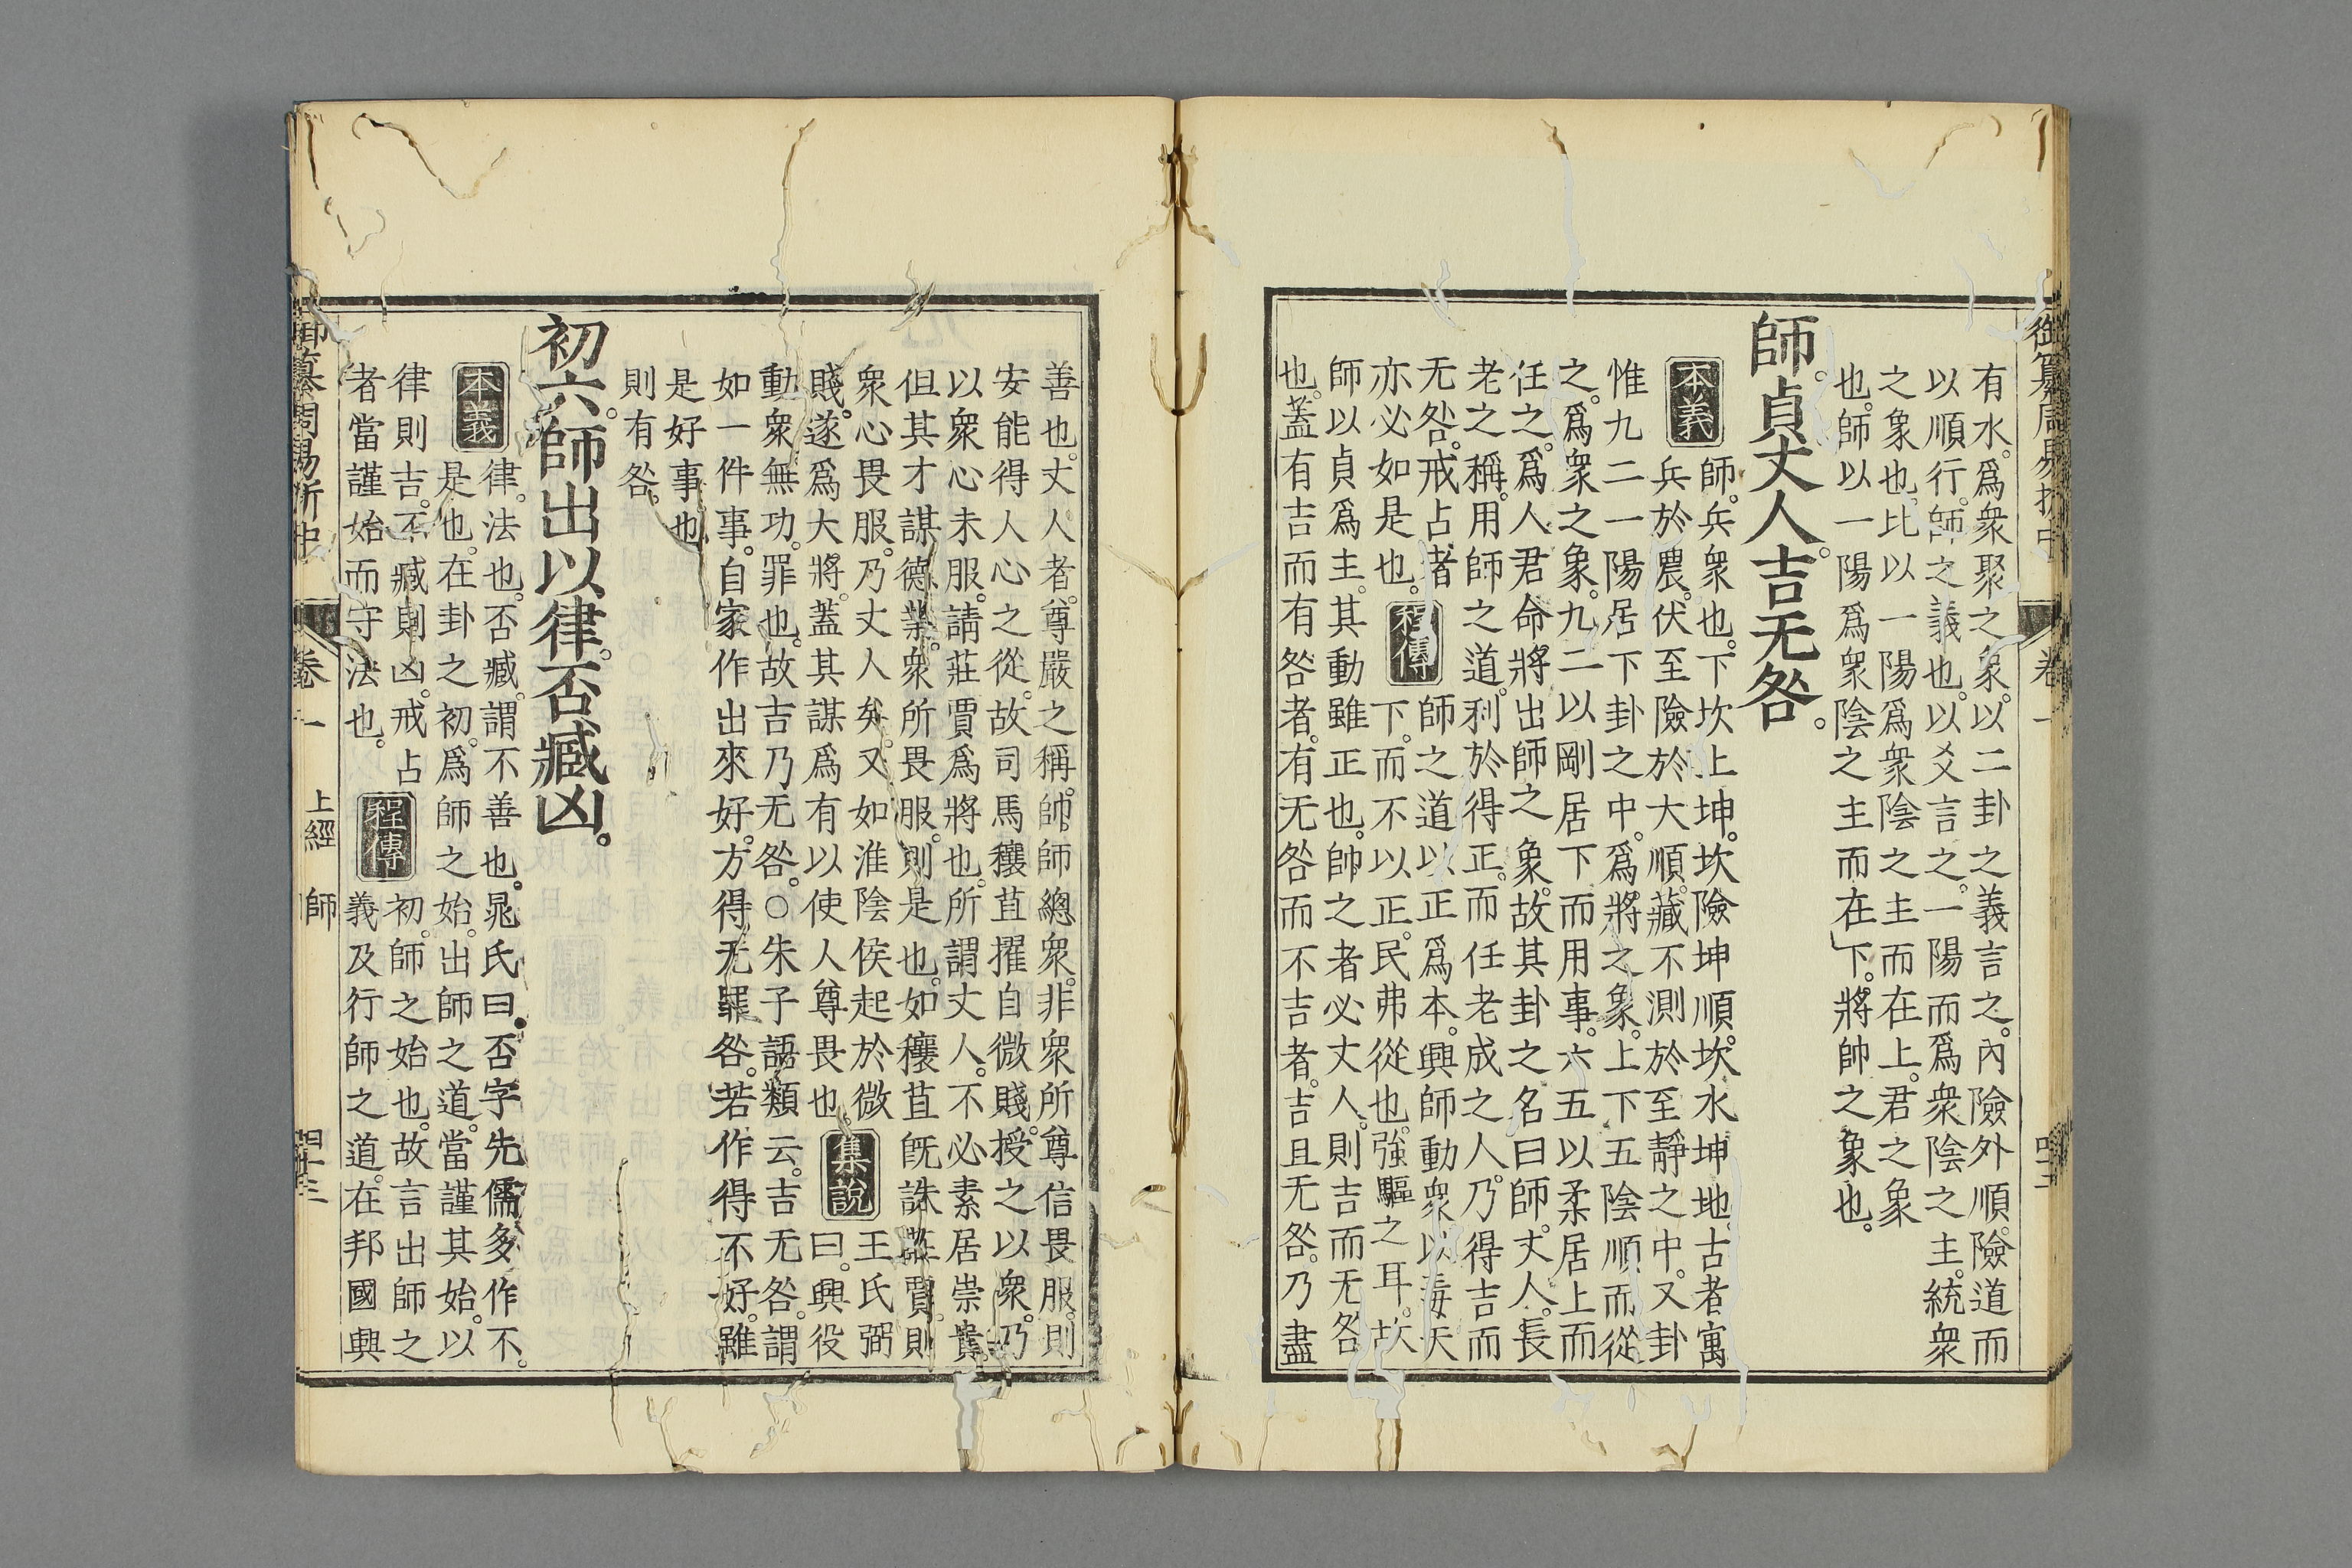 御纂周易折中 卷一
有水。爲衆聚之象。以二卦之義言之。內險外順。險道而
以順行。師之義也。以爻言之。一陽而爲衆陰之主。統衆
之象也。比以一陽爲衆陰之主而在上。君之象
也。師以一陽爲衆陰之主而在下。將帥之象也。
師。貞丈人。吉无咎。
本義
師。兵衆也。下坎上坤。坎險坤順。坎水坤地。古者寓
兵於農。伏至險於大順。藏不測於至靜之中。又卦
惟九二一陽居下卦之中。爲將之象。上下五陰順而從
之。爲衆之象。九二以剛居下而用事。六五以柔居上而
任之。爲人君命將出師之象。故其卦之名曰師。丈人。長
老之稱。用師之道。利於得正。而任老成之人。乃得吉而
无咎。戒占者
亦必如是也。
程傳
師之道以正爲本。興師動衆以毒天
下。而不以正。民弗從也。強驅之耳。故
師以貞爲主。其動雖正也。帥之者必丈人。則吉而无咎
也。蓋有吉而有咎者。有无咎而不吉者。吉且无咎。乃盡
善也。丈人者。尊嚴之稱。帥師總衆。非衆所尊信畏服。則
安能得人心之從。故司馬穰苴擢自微賤。授之以衆。乃
以衆心未服。請莊賈爲將也。所謂丈人。不必素居崇貴。
但其才謀德業。衆所畏服。則是也。如穰苴旣誅莊賈。則
衆心畏服。乃丈人矣。又如淮陰侯起於微
賤。遂爲大將。蓋其謀爲有以使人尊畏也。
集說
王氏弼
曰。興役
動衆無功。罪也。故吉乃无咎。○朱子語類云。吉无咎。謂
如一件事。自家作出來好。方得无罪咎。若作得不好。雖
是好事也
則有咎。
初六。師出以律。否臧凶。
本義
律。法也。否臧。謂不善也。晁氏曰。否字先儒多作不。
是也。在卦之初。爲師之始。出師之道。當謹其始。以
律則吉。不臧則凶。戒占
者當謹始而守法也。
程傳
初。師之始也。故言出師之
義及行師之道。在邦國興
御纂周易折中 卷一 上經 師 四十三